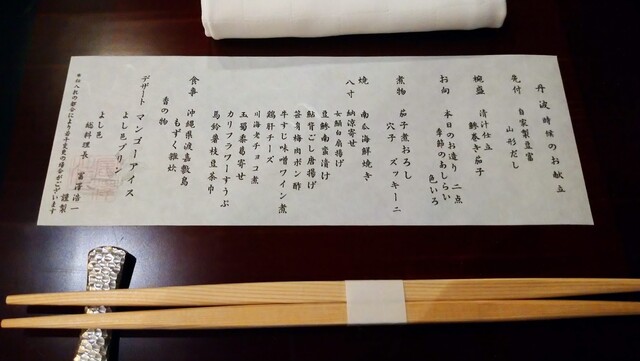 丹波 時候のお献立
先付 自家製豆富
山形だし
椀盛 清汁仕立
鱧巻き茄子
お向 本日のお造り 二点
季節のあしらい 色いろ
煮物 茄子煮おろし
穴子 ズッキーニ
焼 南瓜海鮮焼き
八寸 納涼寄せ
女鯒白扇揚げ
豆鯵南蛮漬け
鮎背ごし唐揚げ
笹身梅肉ポン酢
牛すじ味噌ワイン煮
鶏肝チーズ
川海老チョコ煮
玉蜀黍葛寄せ
カリフラワーすうぷ
馬鈴薯枝豆茶巾
食事 沖縄県渡嘉敷島
もずく雑炊
香の物
デザート マンゴーアイス
よし邑プリン
よし邑
総料理長 冨澤浩一
謹製